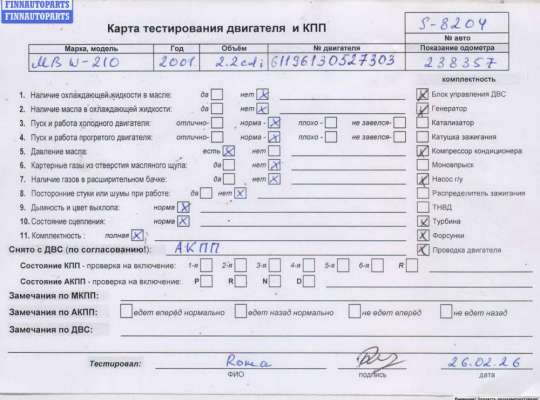 FINNAUTOPARTS
FINNAUTOPARTS
Карта тестирования двигателя и КПП
S-8204
№ авто
Марка, модель Год Объём № двигателя Показание одометра
MB W-210 2001 2.2cdi 61196130527303 238357
комплектность
1. Наличие охлаждающей жидкости в масле: да нет Блок управления ДВС
2. Наличие масла в охлаждающей жидкости: да нет Генератор
3. Пуск и работа холодного двигателя: отлично- норма - плохо - не завелся- Катализатор
4. Пуск и работа прогретого двигателя: отлично- норма - плохо - не завелся- Катушка зажигания
5. Давление масла: есть нет Компрессор кондиционера
6. Картерные газы из отверстия масляного щупа: да нет Моновпрыск
7. Наличие газов в расширительном бачке: да нет Насос г/у
8. Посторонние стуки или шумы при работе: да нет Распределитель зажигания
9. Дымность и цвет выхлопа: норма ТНВД
10. Состояние сцепления: норма Турбина
11. Комплектность : полная Форсунки
Снято с ДВС (по согласованию!): АКПП Проводка двигателя
Состояние КПП - проверка на включение: 1-я 2-я 3-я 4-я 5-я 6-я R
Состояние АКПП - проверка на включение: P R N D
Замечания по МКПП:
Замечания по АКПП: едет вперёд нормально едет назад нормально не едет вперёд не едет назад
Замечания по ДВС:
Тестировал: Roma 26.02.26
ФИО подпись дата